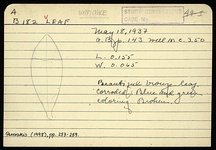 4
B 182 LEAF
May 18, 1937
G.B. p. 143 well m c. 3.50
L. 0.155
W. 0.065
Beautiful bronze leaf,
corroded. Blue and green
coloring. Broken.
(1938), pp. 253-259.